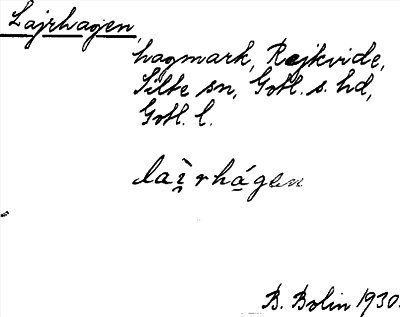 Lajrhagen,
hagmark, Rojkvide,
Silte sn, Gotl. s. hd,
Gotl. l.
B. Bolin 1930.